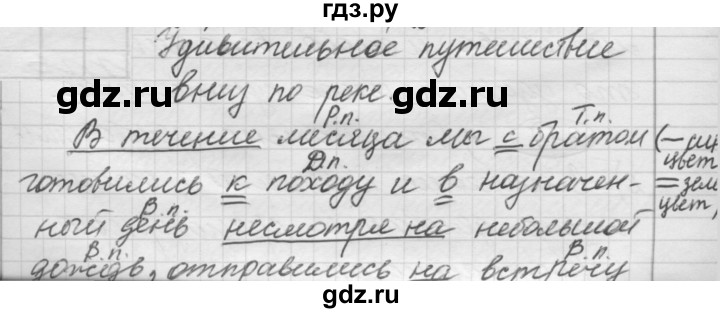 гдз.ру
Удивительное путешествие
вниз по реке.
gdz.ru gdz.ru
Р.п. Т.п.
В течение месяца мы с братом (— син
цвет
Д.п.
готовились к походу и в назначен- = зел
цвет,
В.п.
ный день несмотря на небольшой
В.п. В.п.
дождь, отправились на встречу
gdz.ru gdz.ru